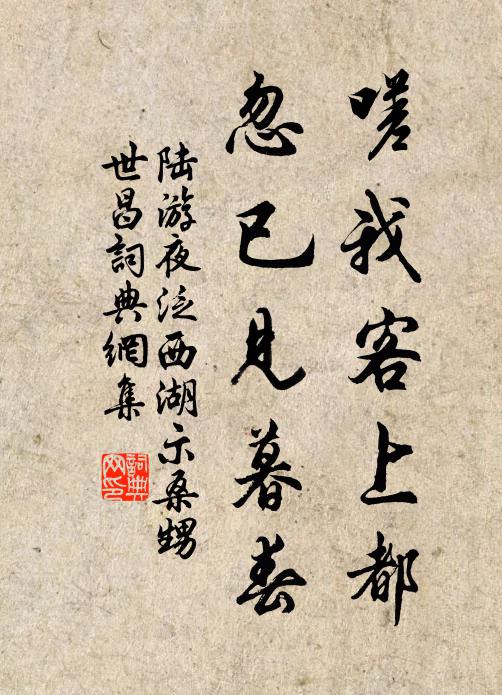 嗟我客上都
忽已見暮春
陸游夜泛西湖示桑甥
世昌詞典網集
詞典
网印